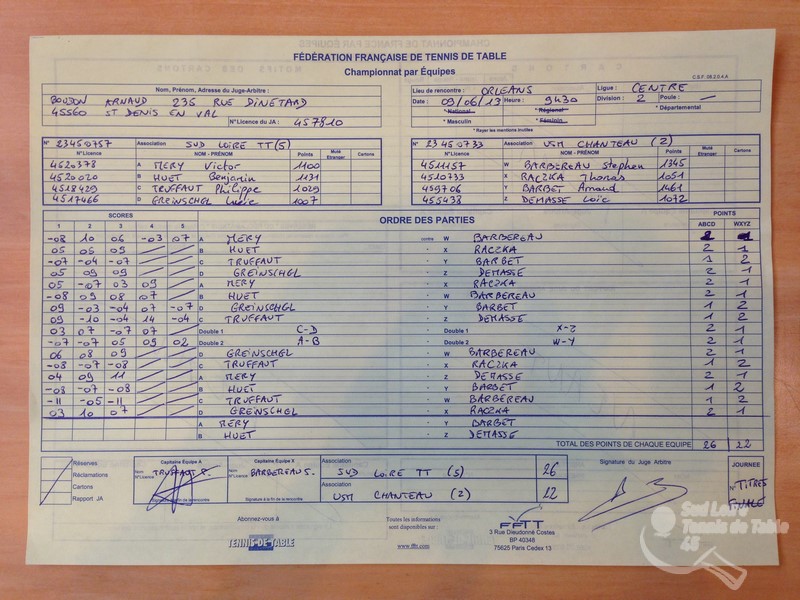 FÉDÉRATION FRANÇAISE DE TENNIS DE TABLE
Championnat par Équipes
C.S.F. 08.2.S.A.A
Nom, Prénom, Adresse du Juge-Arbitre :
BOUJON ARNAUD 235 RUE DINETARD
45560 ST DENIS EN VAL
N°Licence du JA : 457810
Lieu de rencontre : ORLEANS Ligue : CENTRE
Date : 09/06/13 Heures : 9H30 Division : 2 Poule : —
* National * Régional * Départemental
* Masculin * Féminin
* Rayer les mentions inutiles
N° 23450757 Association SUD LOIRE TT (5)
N°Licence NOM - PRÉNOM Points Muté Etranger Cartons
4520378 A MERY Victor 1100
4520020 B HUET Benjamin 1131
4518429 C TRUFFAUT Philippe 1029
4517466 D GREINSCHGL Lucie 1007
N° 23450733 Association USM CHANTEAU (2)
N°Licence NOM - PRÉNOM Points Muté Etranger Cartons
4511157 W BARBEREAU Stephen 1345
4510733 X RACZKA Thomas 1051
459706 Y BARBET Arnaud 1461
455438 Z DEMASSE Loïc 1072
SCORES ORDRE DES PARTIES POINTS
1 2 3 4 5 ABCD WXYZ
-08 10 06 -03 07 A MERY contre W BARBEREAU 2 1
05 06 09 B HUET " X RACZKA 2 1
-07 -04 -07 C TRUFFAUT " Y BARBET 1 2
05 09 09 D GREINSCHGL " Z DEMASSE 2 1
05 -07 03 09 A MERY " X RACZKA 2 1
-08 09 08 07 B HUET " W BARBEREAU 2 1
09 -03 -04 07 -07 D GREINSCHGL " Y BARBET 1 2
09 -10 -04 14 -04 C TRUFFAUT " Z DEMASSE 1 2
03 07 -07 07 Double 1 C-D " Double 1 X-Z 2 1
-07 -07 05 09 02 Double 2 A-B " Double 2 W-Y 2 1
06 08 09 D GREINSCHGL " W BARBEREAU 2 1
-08 -07 -08 C TRUFFAUT " X RACZKA 1 2
04 09 11 A MERY " Z DEMASSE 2 1
-08 -07 -08 B HUET " Y BARBET 1 2
-11 -05 -11 C TRUFFAUT " W BARBEREAU 1 2
03 10 07 D GREINSCHGL " X RACZKA 2 1
A MERY " Y BARBET
B HUET " Z DEMASSE
TOTAL DES POINTS DE CHAQUE ÉQUIPE 26 22
Réserves
Réclamations
Cartons
Rapport JA
Capitaine Équipe A
Nom TRUFFAUT P.
N°Licence
Signature à la fin de la rencontre
Capitaine Équipe X
Nom BARBEREAU S.
N°Licence
Signature à la fin de la rencontre
Association SUD LOIRE TT (5) 26
Association USM CHANTEAU (2) 22
Signature du Juge Arbitre
JOURNEE
N° TITRES
FINALE
Abonnez-vous à
TENNIS DE TABLE
Toutes les informations
sont disponibles sur :
www.fftt.com
FFTT
3 Rue Dieudonné Costes
BP 40348
75625 Paris Cedex 13
Sud Loire
Tennis de Table
45